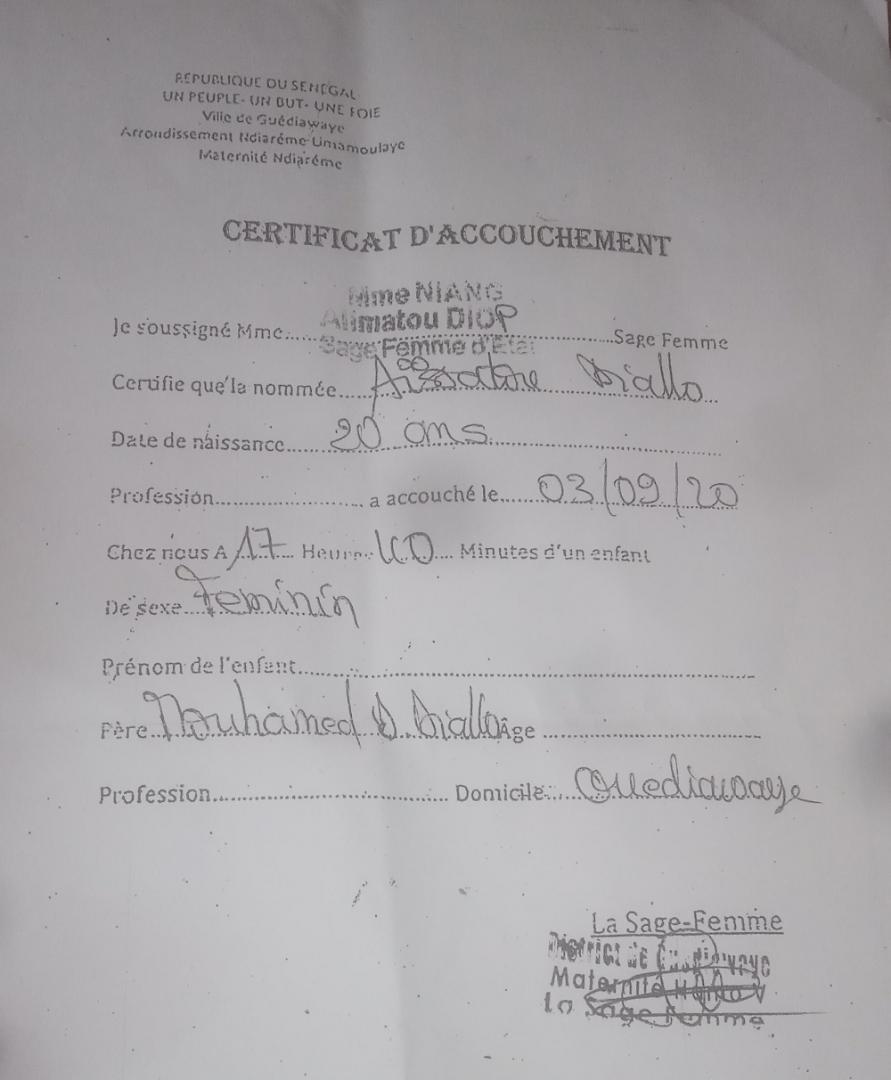 REPUBLIQUE DU SENEGAL
UN PEUPLE- UN BUT- UNE FOIE
Ville de Guédiawaye
Arrondissement Ndiaréme Limamoulaye
Maternité Ndiaréme
CERTIFICAT D'ACCOUCHEMENT
Mme NIANG
Alimatou DIOP
Sage Femme d'Etat
Je soussigné Mme..... ..........Sage Femme
Certifie que la nommée..... Aïssatou Diallo
Date de naissance..... 20 ans
Profession..................... a accouché le..... 03/09/20
Chez nous A 17 Heure 40 Minutes d'un enfant
De sexe... Feminin
Prénom de l'enfant..............................
Père Mouhamed D. Diallo Âge ..............................
Profession.............................. Domicile..... Guediawaye
La Sage-Femme
District de Guediawaye
Maternité
La Sage Femme